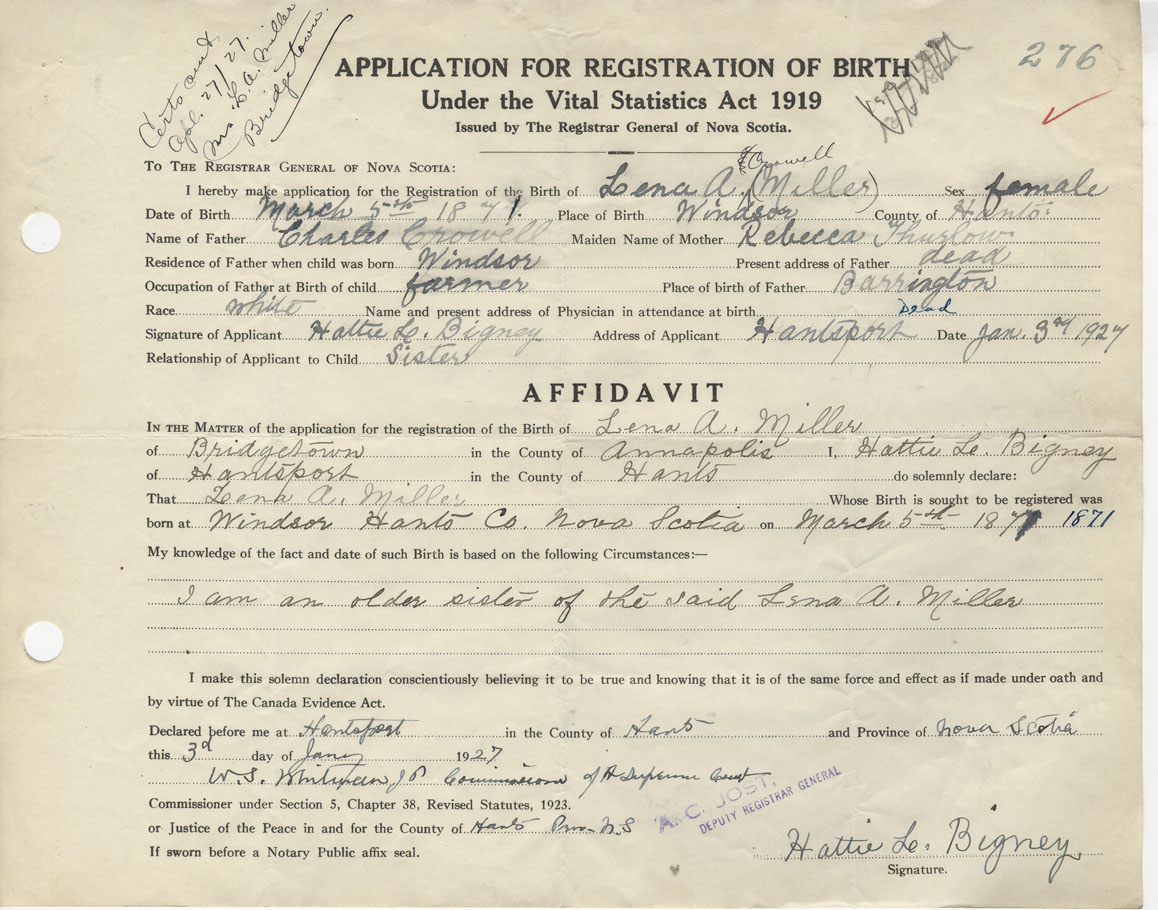 Certs out
27/27.
Mrs. L. A. Miller
Bridgetown.
276
APPLICATION FOR REGISTRATION OF BIRTH
Under the Vital Statistics Act 1919
Issued by The Registrar General of Nova Scotia.
TO THE REGISTRAR GENERAL OF NOVA SCOTIA:
Crowell
I hereby make application for the Registration of the Birth of Lena A. (Miller) Sex female
Date of Birth March 5th 1871. Place of Birth Windsor County of Hants
Name of Father Charles Crowell Maiden Name of Mother Rebecca Thurlow
Residence of Father when child was born Windsor Present address of Father dead
Occupation of Father at Birth of child farmer Place of birth of Father Barrington
Race white Name and present address of Physician in attendance at birth Dead
Signature of Applicant Hattie L. Bigney Address of Applicant Hantsport Date Jan. 3rd 1927
Relationship of Applicant to Child Sister
AFFIDAVIT
IN THE MATTER of the application for the registration of the Birth of Lena A. Miller
of Bridgetown in the County of Annapolis I, Hattie L. Bigney
of Hantsport in the County of Hants do solemnly declare:
That Lena A. Miller Whose Birth is sought to be registered was
born at Windsor Hants Co. Nova Scotia on March 5th 1871 1871
My knowledge of the fact and date of such Birth is based on the following Circumstances:—
I am an older sister of the said Lena A. Miller
I make this solemn declaration conscientiously believing it to be true and knowing that it is of the same force and effect as if made under oath and
by virtue of The Canada Evidence Act.
Declared before me at Hantsport in the County of Hants and Province of Nova Scotia
this 3d day of Jany 1927
W. S. Whitman J P Commissioner of Supreme Court
Commissioner under Section 5, Chapter 38, Revised Statutes, 1923.
A. C. JOST,
DEPUTY REGISTRAR GENERAL
or Justice of the Peace in and for the County of Hants Prov. N S
If sworn before a Notary Public affix seal.
Hattie L. Bigney
Signature.